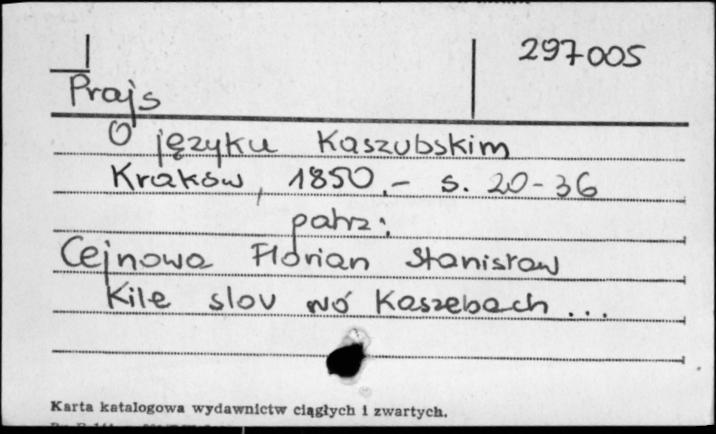 297005
Prajs
O języku Kaszubskim
Kraków, 1850.- s. 20-36
patrz:
Cejnowa Florian Stanisław
Kile slov wó Kaszebach ...
Karta katalogowa wydawnictw ciągłych i zwartych.